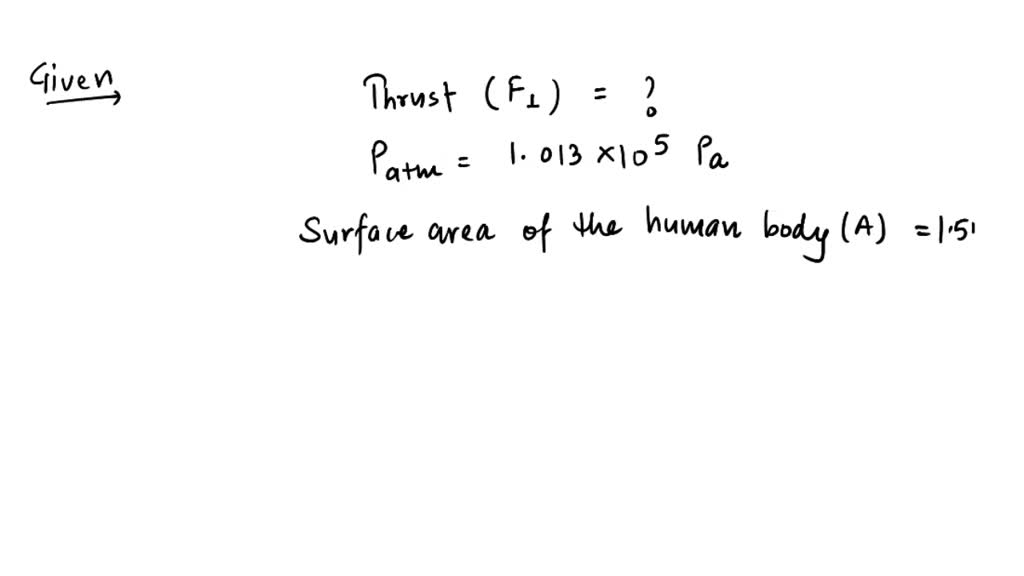 Given
Thrust (F⊥) = ?
Patm = 1.013 ×10⁵ Pa
Surface area of the human body (A) = 1.5